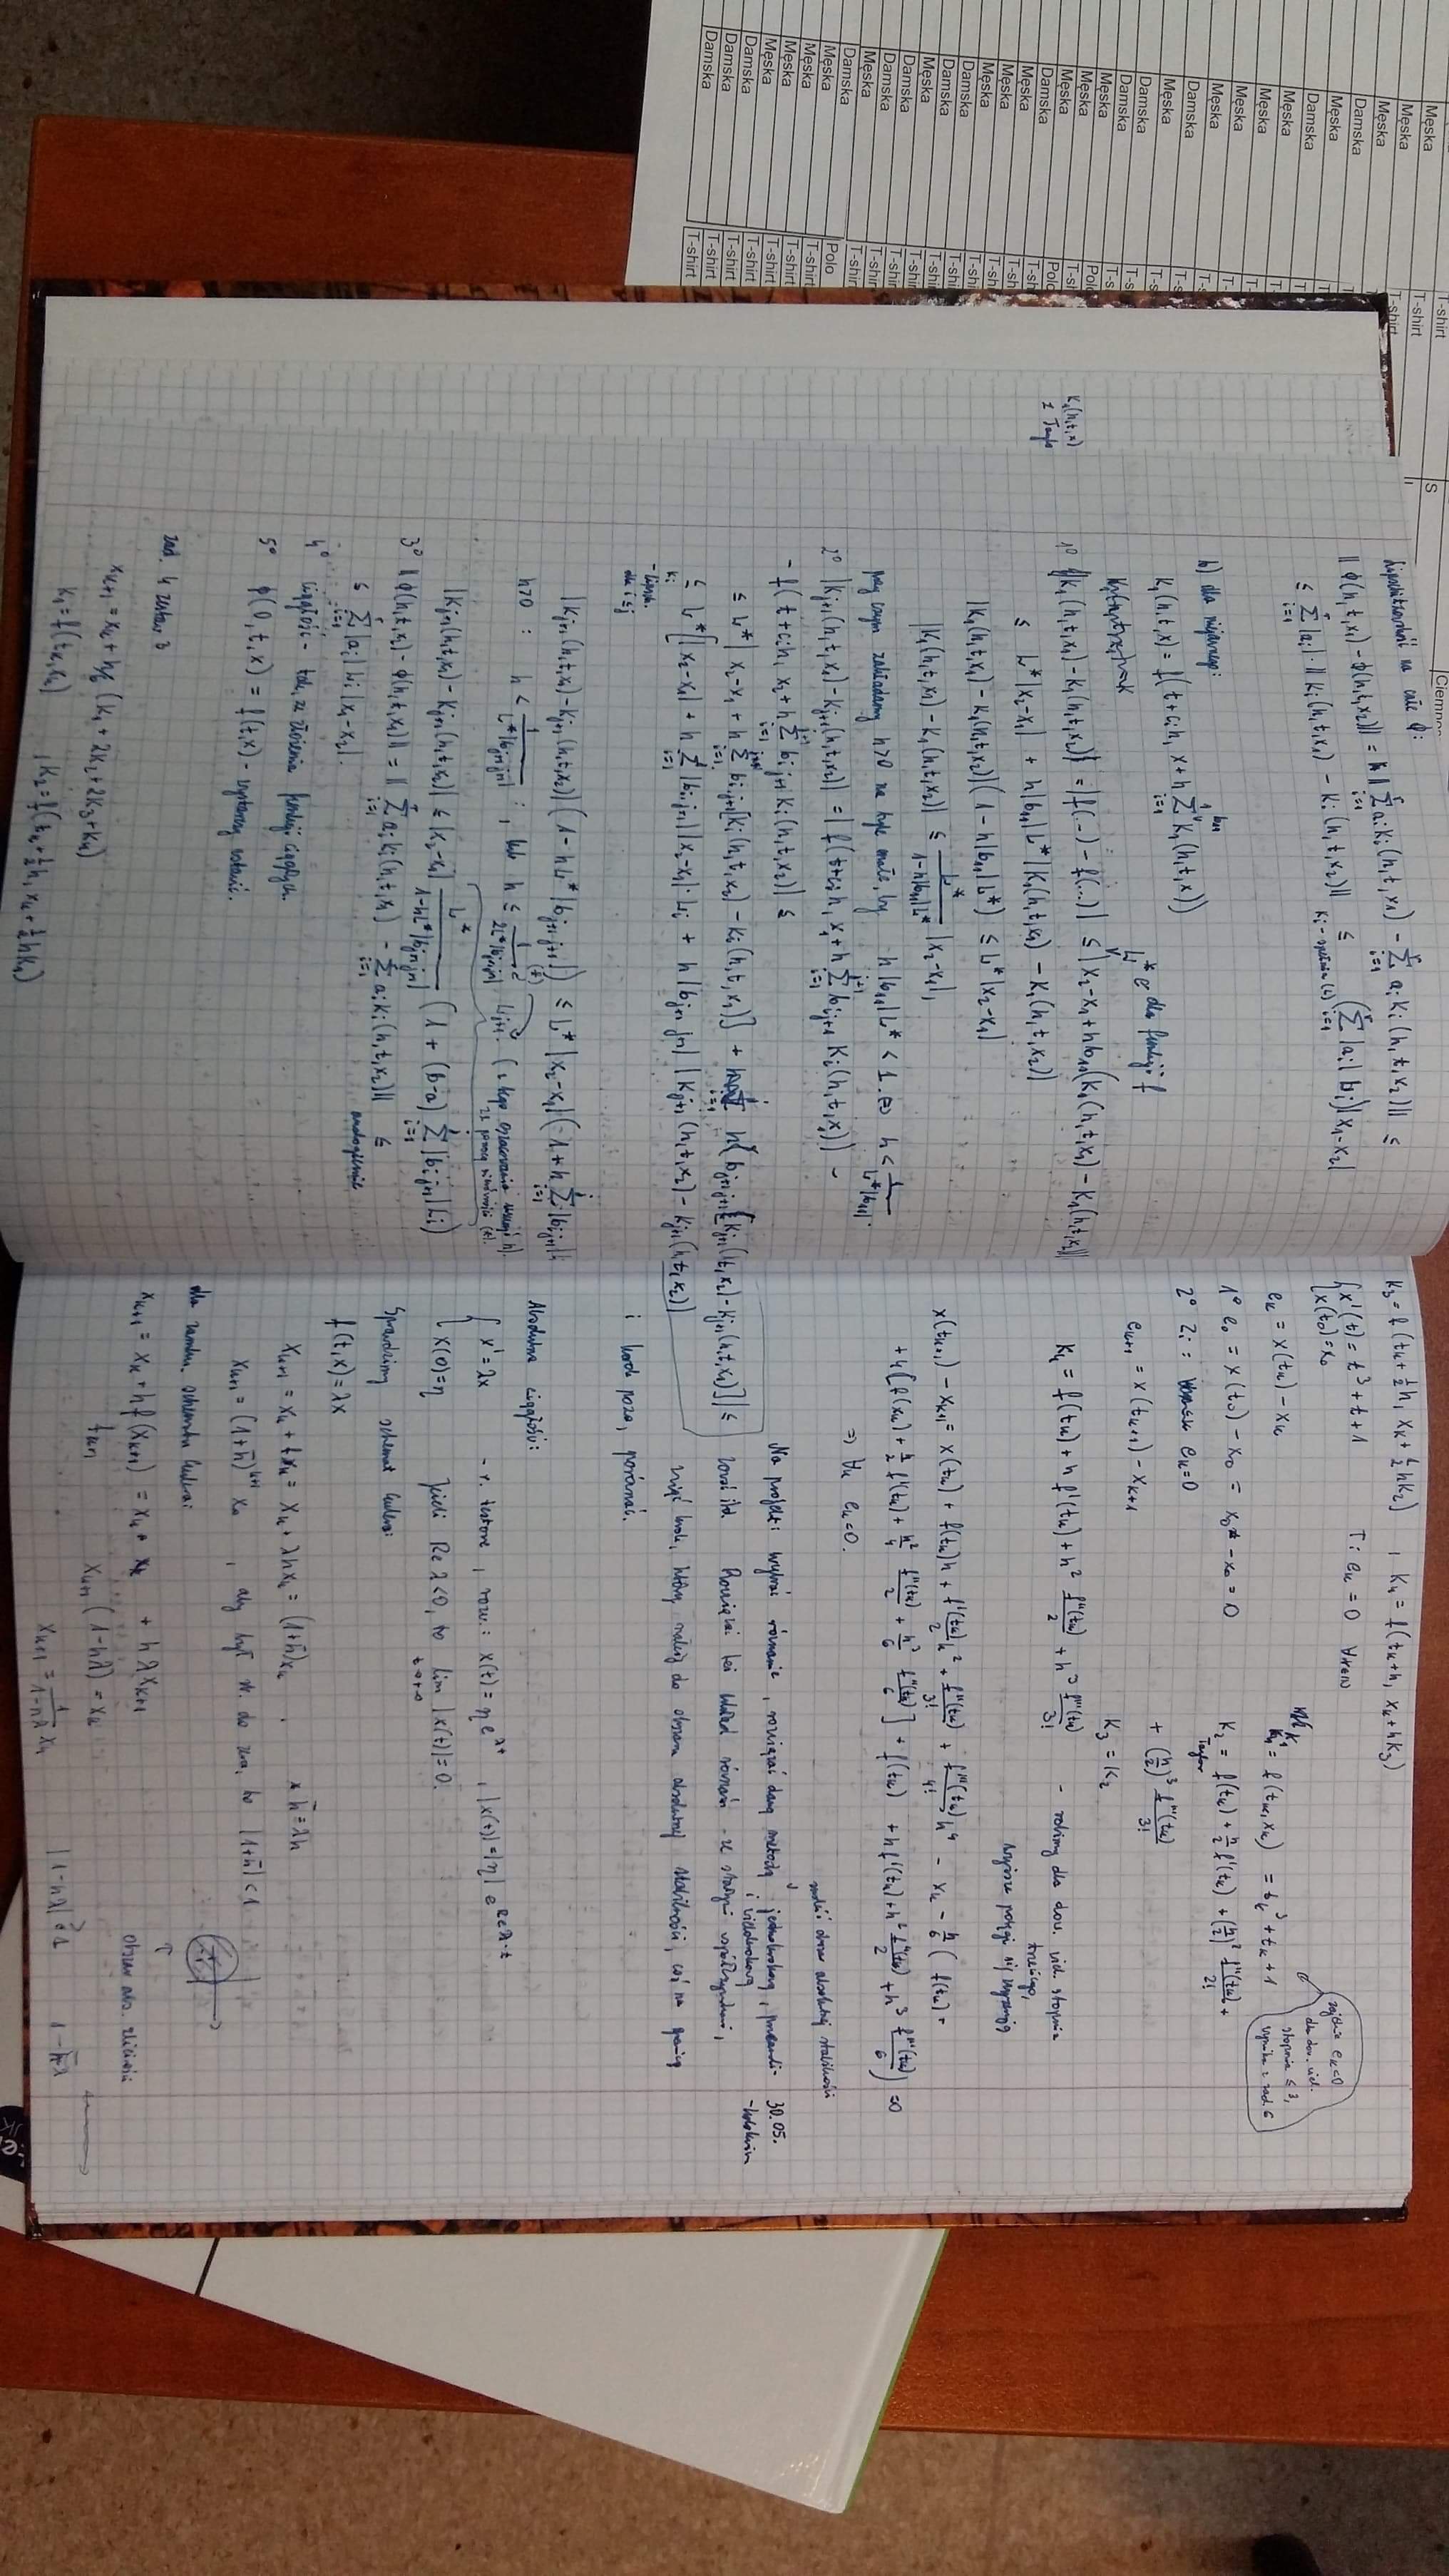 Męska T-shirt
Męska T-shirt S Ciemno
Męska T-shirt
Męska T-shirt
Damska
Męska
Damska
Męska
Męska
Męska
Męska
Damska
Męska
Damska
Damska T-sh
Męska Polo
Męska T-sh
Męska Pol
Damska T-sh
Męska T-sh
Męska T-sh
Męska T-sh
Damska T-sh
Damska T-sh
Męska T-shir
Damska T-shir
Damska T-shir
Męska T-shirt
Damska Polo
Męska T-shirt
Męska T-shirt
Męska T-shirt
Męska T-shirt
Damska T-shirt
Damska T-shirt
Damska T-shirt
Lipschitzowskość na całe ϕ:
‖ϕ(h,t,x₁) - ϕ(h,t,x₂)‖ = ‖∑ᵢ₌₁ʳ aᵢKᵢ(h,t,x₁) - ∑ᵢ₌₁ʳ aᵢKᵢ(h,t,x₂)‖ ≤
≤ ∑ᵢ₌₁ʳ |aᵢ|·‖Kᵢ(h,t,x₁) - Kᵢ(h,t,x₂)‖ ≤ (∑ᵢ₌₁ʳ |aᵢ| Lᵢ)|x₁-x₂|
Kᵢ - spełnia (L)
b) dla niejawnego:
b₁₁
K₁(h,t,x) = f(t+cᵢh, x+h∑ᵢ₌₁¹ K₁(h,t,x))
L* dla funkcji f
K₁(h,t,x)
1° |K₁(h,t,x₁)-K₁(h,t,x₂)| = |f(...) - f(...)| ≤ |x₂-x₁+hb₁₁(K₁(h,t,x₁) - K₁(h,t,x₂)
≤ L*|x₂-x₁| + h|b₁₁|L*|K₁(h,t,x₁) - K₁(h,t,x₂)|
|K₁(h,t,x₁) - K₁(h,t,x₂)|(1-h|b₁₁|L*) ≤ L*|x₂-x₁|
|K₁(h,t,x₁) - K₁(h,t,x₂)| ≤ L*/(1-h|b₁₁|L*) |x₂-x₁|,
przy czym zakładamy h>0 na tyle małe, by h|b₁₁|L* < 1 ⇔ h < 1/(L*|b₁₁|).
2° |Kⱼ₊₁(h,t,x₁)-Kⱼ₊₁(h,t,x₂)| = |f(t+cᵢh, x₁+h∑ᵢ₌₁ʲ⁺¹ bᵢⱼ₊₁ Kᵢ(h,t,x₁)) -
- f(t+cᵢh, x₂+h∑ᵢ₌₁ʲ⁺¹ bᵢⱼ₊₁Kᵢ(h,t,x₂)| ≤
≤ L*| x₂-x₁ + h∑ᵢ₌₁ʲ bᵢⱼ₊₁[Kᵢ(h,t,x₂) - Kᵢ(h,t,x₁)] + h bⱼ₊₁ⱼ₊₁[Kⱼ₊₁(h,t,x₂)-Kⱼ₊₁(h,t,x₁)]| ≤
≤ L*[|x₂-x₁| + h∑ᵢ₌₁ʲ |bᵢⱼ₊₁||x₂-x₁|·Lᵢ + h|bⱼ₊₁ⱼ₊₁| |Kⱼ₊₁(h,t,x₂) - Kⱼ₊₁(h,t,x₂)]
Kᵢ
- Lipsch.
dla i≤j
|Kⱼ₊₁(h,t,x₁)-Kⱼ₊₁(h,t,x₂)|(1-hL*|bⱼ₊₁ⱼ₊₁|) ≤ L*|x₂-x₁|(1+h∑ᵢ₌₁ʲ|bᵢⱼ₊₁|L
h>0 : h < 1/(L*|bⱼ₊₁ⱼ₊₁|) , lub h ≤ 1/(2L*|bⱼ₊₁ⱼ₊₁|) (*) Lⱼ₊₁. (z tego oszacowania usunąć h).
za pomocą nierówności (*).
|Kⱼ₊₁(h,t,x₁)-Kⱼ₊₁(h,t,x₂)| ≤ |x₂-x₁| L*/(1-hL*|bⱼ₊₁ⱼ₊₁|) (1+(b-a)∑ᵢ₌₁ʲ|bᵢⱼ₊₁|Lᵢ)
3° ‖ϕ(h,t,x₂)-ϕ(h,t,x₁)‖ = ‖∑ᵢ₌₁ʳ aᵢKᵢ(h,t,x₁) - ∑ᵢ₌₁ʳ aᵢKᵢ(h,t,x₂)‖ ≤
analogicznie
≤ ∑ᵢ₌₁ʳ |aᵢ| Lᵢ |x₁-x₂|.
4° ciągłość - tak, ze złożenia funkcji ciągłych.
5° ϕ(0,t,x) = f(t,x) - wystarczy wstawić.
zad. 4 zestaw 3
xₖ₊₁ = xₖ + h/6 (K₁ + 2K₂ + 2K₃ + K₄)
K₁ = f(tₖ,xₖ) , K₂ = f(tₖ+½h, xₖ+½hK₁)
K₃ = f(tₖ+½h, xₖ+½hK₂) , K₄ = f(tₖ+h, xₖ+hK₃)
{x'(t) = t³+t+1 T: eₖ = 0 ∀k∈ℕ
x(t₀) = x₀
zajdzie eₖ=0
dla dow. wiel.
stopnia ≤ 3,
wynika z zad. 6
eₖ = x(tₖ) - xₖ
K₁ = f(tₖ,xₖ) = tₖ³+tₖ+1
1° e₀ = x(t₀) - x₀ = x₀ - x₀ = 0
K₂ = f(tₖ) + h/2 f'(tₖ) + (h/2)² f''(tₖ)/2! +
Taylor
+ (h/2)³ f'''(tₖ)/3!
2° Zi: eₖ=0
eₖ₊₁ = x(tₖ₊₁) - xₖ₊₁
K₃ = K₂
K₄ = f(tₖ) + h f'(tₖ) + h² f''(tₖ)/2 + h³ f'''(tₖ)/3! - robimy dla dow. wiel. stopnia
trzeciego,
wyższe potęgi się wyzerują
x(tₖ₊₁) - xₖ₊₁ = x(tₖ) + f(tₖ)h + f'(tₖ)/2 h² + f''(tₖ)/3! + f'''(tₖ)/4! h⁴ - xₖ - h/6 ( f(tₖ) +
+4[f(xₖ) + h/2 f'(tₖ) + h²/4 f''(tₖ)/2 + h³/6 f'''(tₖ)/6] + f(tₖ) + hf'(tₖ) + h² f''(tₖ)/2 + h³ f'''(tₖ)/6) = 0
⇒ ∀k eₖ=0.
znaleźć obszar absolutnej stabilności
Na projekt: wybrać równanie, rozwiązać daną metodą jednokrokową, przeanali- 30.05.
i wielokrokową - kolokwium
zować itd. Rozwiązać też układ równań - ze stałymi współczynnikami,
wziąć krok, który należy do obszaru absolutnej stabilności, coś na granicy
i krok poza, porównać.
Absolutna ciągłość:
{ x' = λx - r. testowe, rozw.: x(t) = ηe^λt , |x(t)| = |η| e^Reλ·t
x(0) = η Jeśli Re λ<0, to lim |x(t)| = 0.
t→+∞
Sprawdzimy schemat Eulera:
f(t,x) = λx
xₖ₊₁ = xₖ + fxₖ = xₖ + λhxₖ = (1+h̄)xₖ , h̄ = λh
xₖ₊₁ = (1+h̄)ᵏ⁺¹ x₀ , aby był zb. do zera, to |1+h̄| < 1
dla zamkn. schematu Eulera:
xₖ₊₁ = xₖ + hf(xₖ₊₁) = xₖ + hλxₖ₊₁
obszar abs.
tₖ₊₁ xₖ₊₁(1-hλ) = xₖ
xₖ₊₁ = 1/(1-hλ) xₖ |1-hλ| > 1 1-h̄λ
K₁(h,t,x)
z Tayl